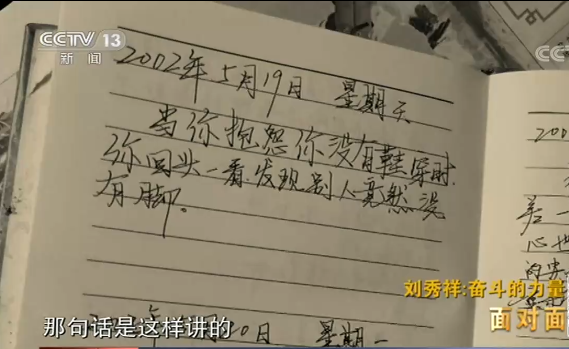 CCTV 13
新闻
CC
2002年5月19日 星期天
当你抱怨你没有鞋穿时,
你回头一看,发现别人竟然没
有脚。
200
若一
心也
刘秀祥:奋斗的力量
面对面
那句话是这样讲的
20日 星期一